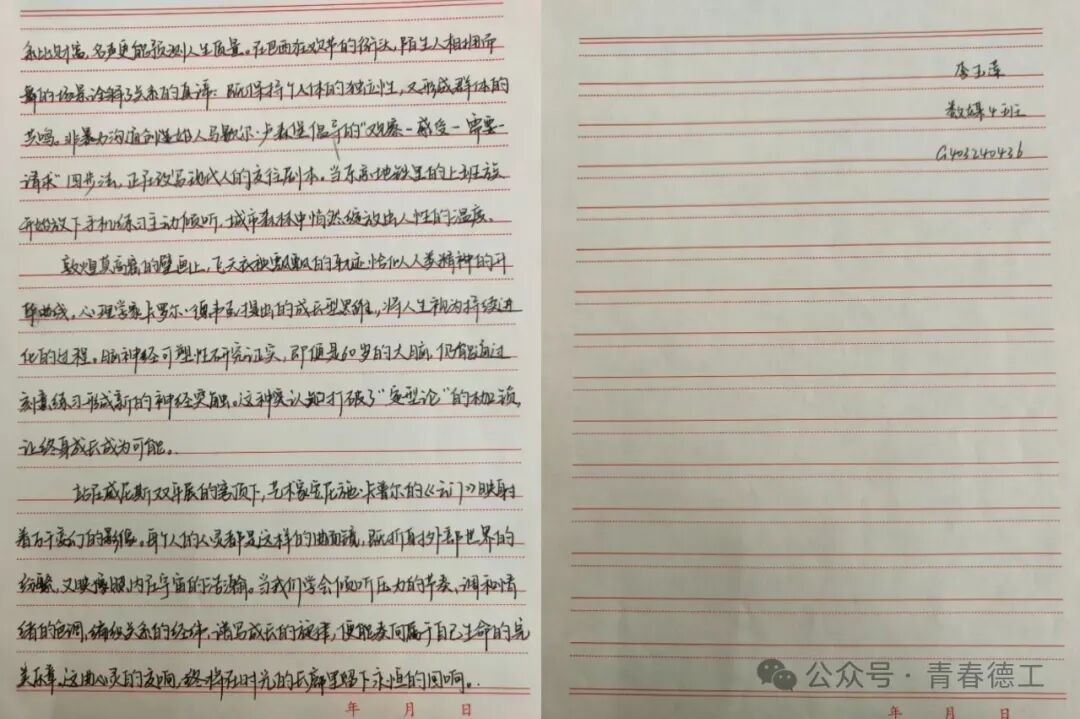 系比财富、名声更能预测人生质量。在巴西狂欢节的街头，陌生人相拥而
舞的场景诠释了关系的真谛：既保持个人体的独立性，又形成群体的
共鸣。非暴力沟通创始人马歇尔·卢森堡倡导的“观察-感受-需要-
请求”四步法，正在改写现代人的交往剧本。当东京地铁里的上班族
开始放下手机练习主动倾听，城市森林中悄然绽放出人性的温度。
敦煌莫高窟的壁画上，飞天衣袂飘飘的轨迹恰似人类精神的升
华曲线。心理学家卡罗尔·德韦克提出的成长型思维，将人生视为持续进
化的过程。脑神经可塑性研究证实，即便是60岁的大脑，仍能通过
刻意练习形成新的神经突触。这种认知打破了“定型论”的枷锁，
让终身成长成为可能。
站在威尼斯双年展的穹顶下，艺术家安尼施·卡普尔的《云门》映射
着万千变幻的影像。每个人的心灵都是这样的曲面镜，既折射外部世界的
纷繁，又映照内在宇宙的浩瀚。当我们学会倾听压力的节奏，调和情
绪的色调，编织关系的经纬，谱写成长的旋律，便能奏响属于自己生命的完
美乐章。这曲心灵的交响，终将在时光的长廊里留下永恒的回响。
年 月 日
李玉莲
数媒4班
G403240436
年 月 日
公众号·青春德工